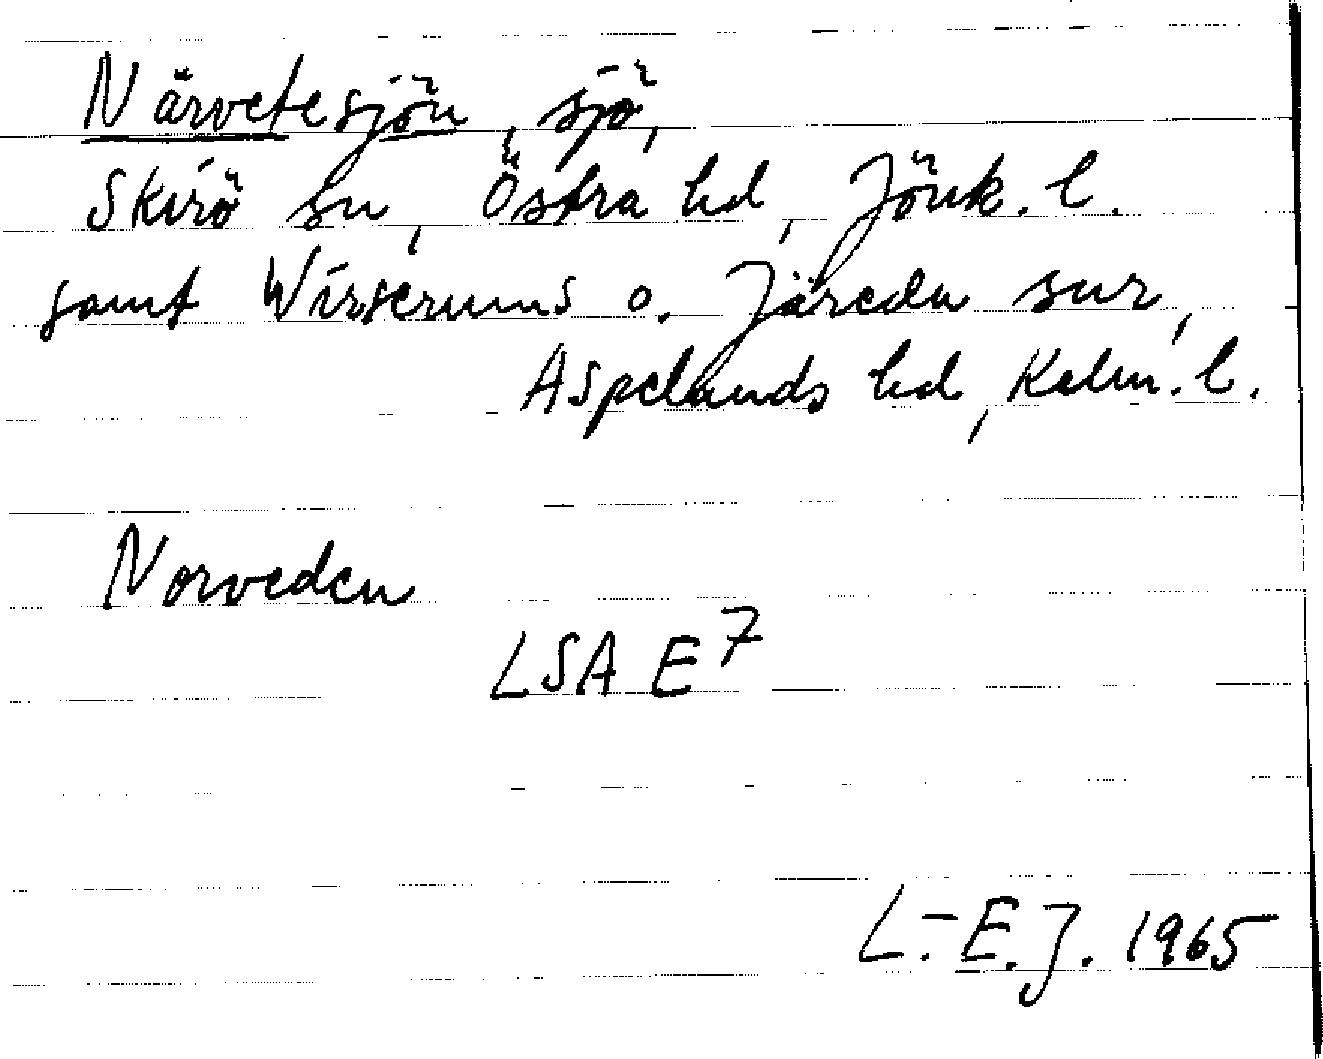 Närvetesjön, sjö,
Skirö sn, Östra hd, Jönk. l.
samt Wirserums o. Järeda snr,
Aspelands hd, Kalm. l.
Norveden
LSA E7
L.-E.J. 1965